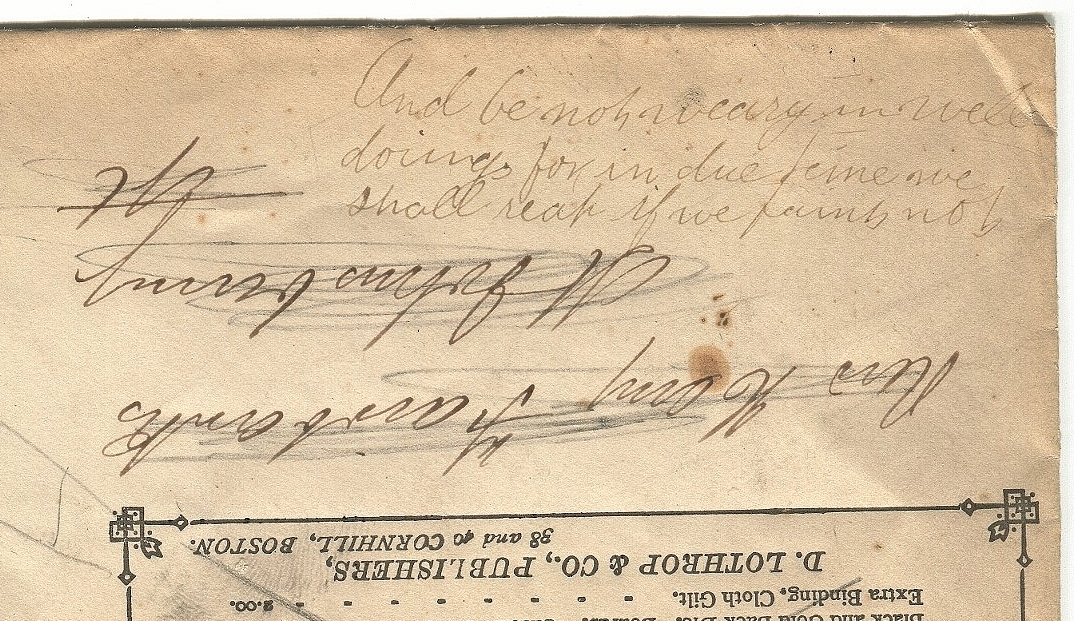 And be not weary in well
doings for in due time we
shall reap if we faint not
Black and Gold Back Die. Boards.
Extra Binding, Cloth Gilt. - - - - - - - - 2.00.
D. LOTHROP & CO., PUBLISHERS,
38 and 40 CORNHILL, BOSTON.
Henry Fairbanks
St Johnsbury
Vt